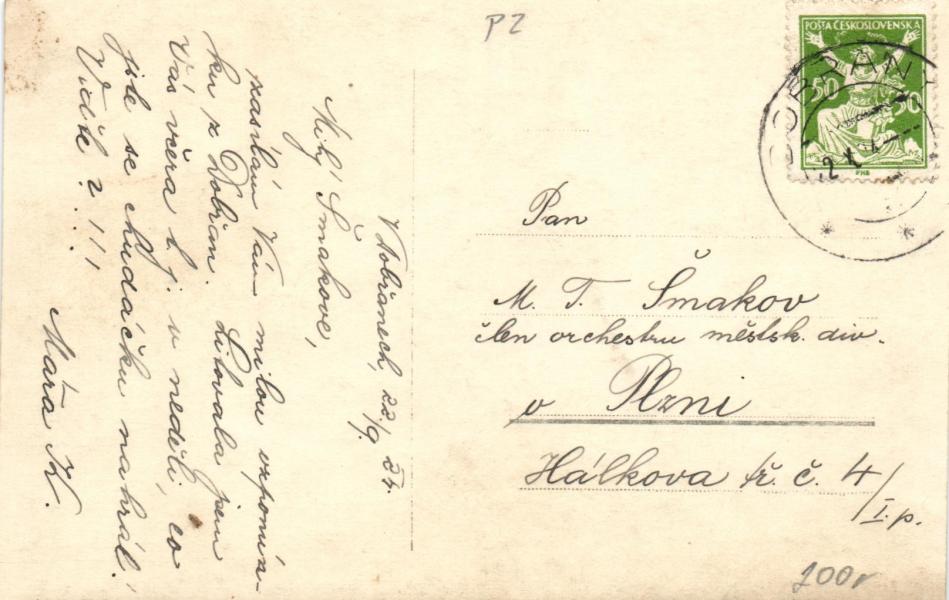 PZ
POŠTA ČESKOSLOVENSKÁ
50 50
DOBŘANY
V Dobřanech, 22/9. 24.
Milý Šmakove,
zasílám Vám milou vzpomín-
ku z Dobřan. Litovala jsem
Vás včera t.j. v neděli, co
jste se chudáčku nahrál!
Vidíte? !!!
Mářa K.
Pan
M. T. Šmakov
člen orchestru městsk. div.
v Plzni
Hálkova tř. č. 4/I.p.
200,-